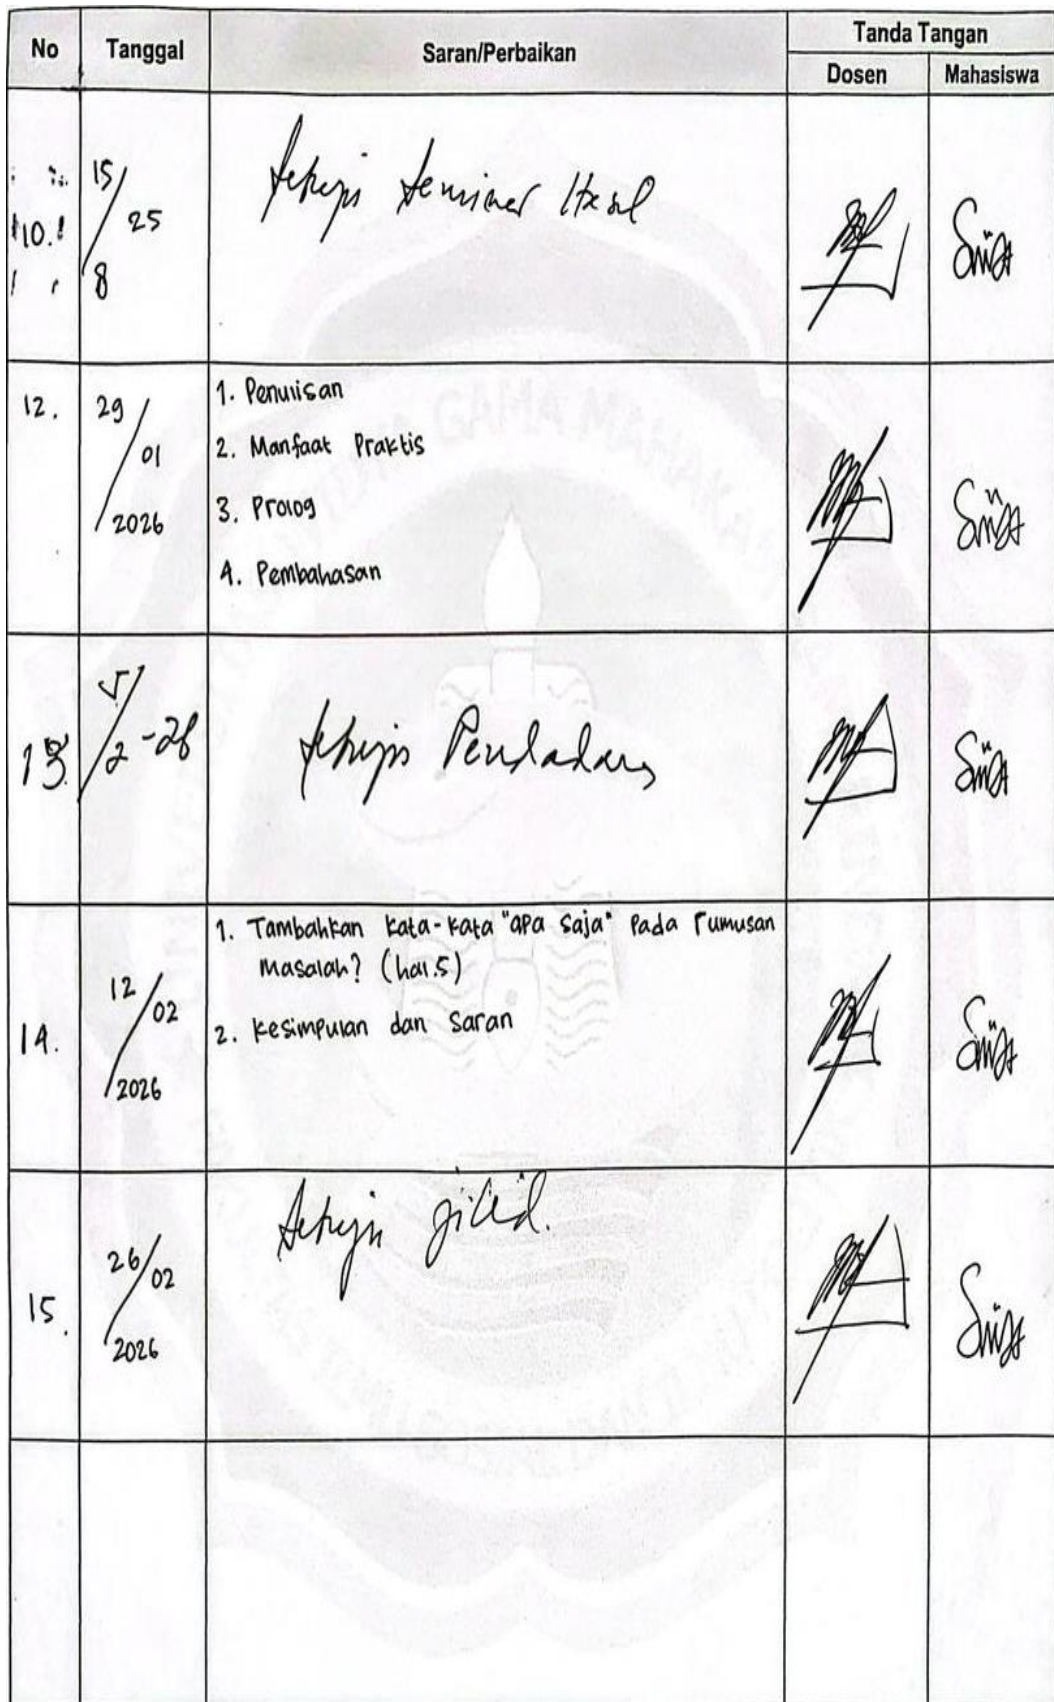 No Tanggal Saran/Perbaikan Tanda Tangan
Dosen Mahasiswa
10. 15/8 25 Setuju Seminar Hasil
12. 29/01/2026
1. Penulisan
2. Manfaat Praktis
3. Prolog
4. Pembahasan
13. 5/2-26 Setuju Pendadaran
14. 12/02/2026
1. Tambahkan kata-kata "apa saja" pada rumusan
masalah? (hal.5)
2. Kesimpulan dan saran
15. 26/02/2026 Setuju jilid.